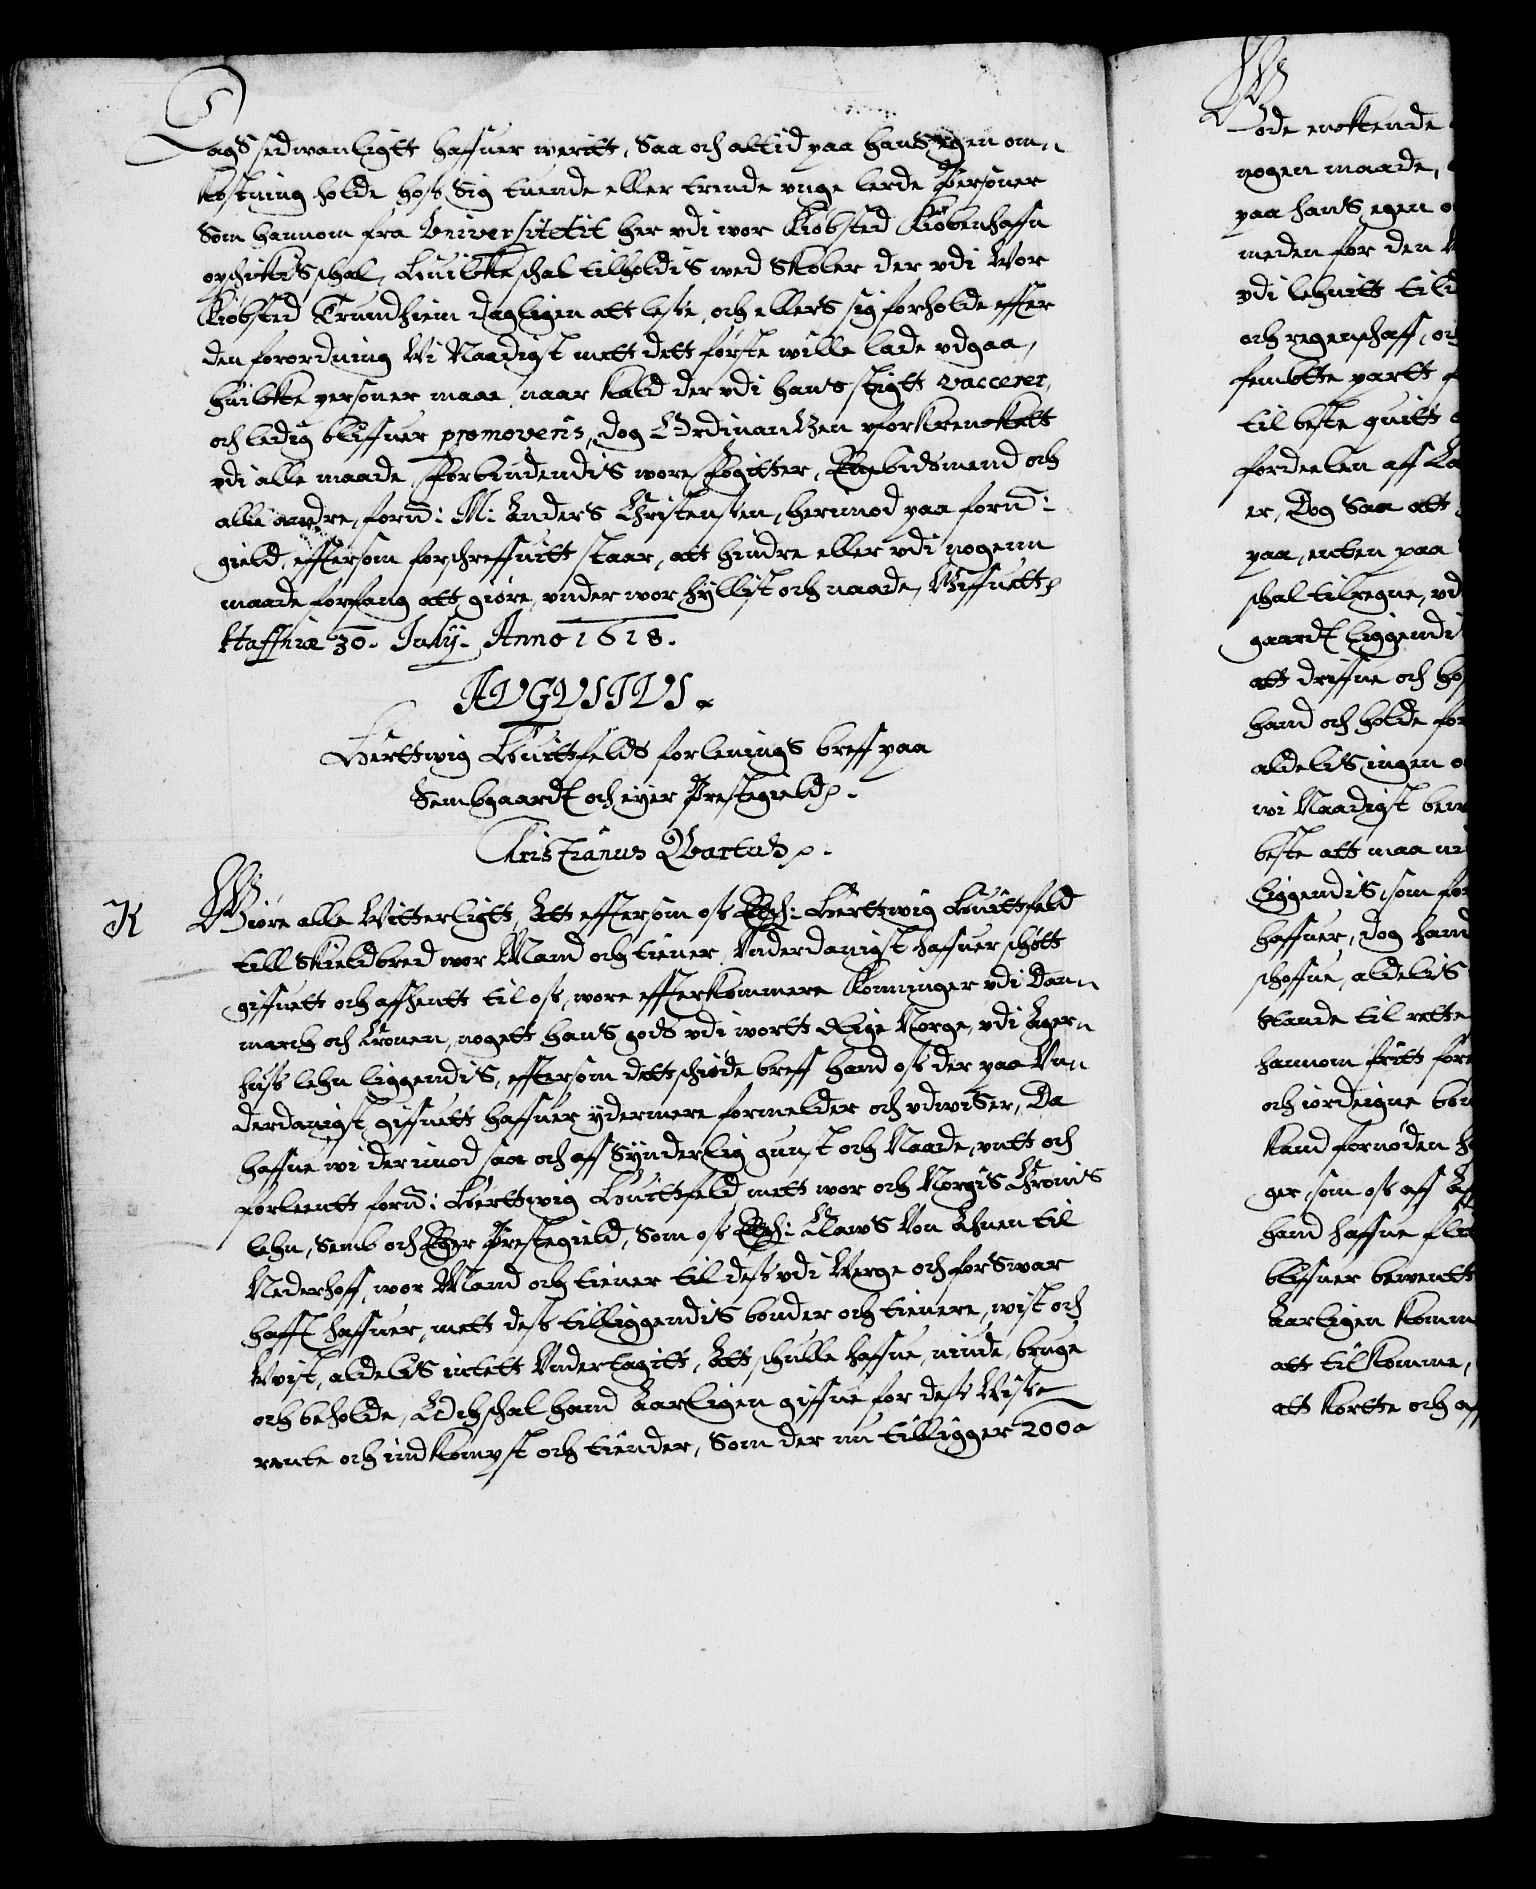 Dags sedwanligtt haffuer weritt, Saa och altid paa hans egen om-
kostning holde hoss sig tuende eller trende vnge lerde Personer
Som hannom fra Universitetit her vdi wor Kiöbsted Kiöbenhaffn
opschikkis schal, Huilcke schal tilholdis wed Skolen der vdi Wor
Kiöbsted Trundhiem dagligen att lesse, och ellers sig forholde effter
den forordning Wi Naadigst mett dett förste wille lade vdgaa,
huilcke personer maae, naar Kald der vdi hans stigtt vaccerer,
och ledig bliffuer promoveris, dog Ordinantzen vforkrencket
vdi alle maade, Forbiudendis wore Fogitter, Embidsmend och
alle andre, fornd: M: Anders Christenssen, herimod paa fornd:
gield, efftersom forschreffuitt staar, att hindre eller vdi nogenn
maade forfang att giöre, vnder wor hyllist och naade, Giffuett
Haffniæ 30. July. Anno 1618.
AVGVSTVS.
Herttwig Huittfelds forlenings breff paa
Sembgaard och eyer Prestegield.
Christianus Qvartus.
K
Giöre alle Witterligtt, Att efftersom oss Elsch: Herttwig Huittfeld
till Skieldbred wor Mand och tiener Vnderdanigst haffuer schött
giffuett och affhentt til oss, wore effterkommere Konninger vdi Dan-
march och Cronen, nogett hans gods vdi wortt Rige Norge, vdi Agers-
huss lehn liggendis, efftersom dett schiöde breff hand oss der paa Vn-
derdanigst giffuett haffuer ydermere formelder och vdwiser, Da
haffue wi derimod saa och aff Synderlig gunst och Naade, vntt och
forlentt fornd: Herttwig Huittfeld, mett wor och Norgis Cronis
lehn, Semb och Eger Prestegield, Som oss Elsch: Claws Von Ahnen til
Nederhoff, wor Mand och tiener til dess vdi Werge och forswar
hafft haffuer, mett dess tilliggendis bönder och tienere, wist och
Vvist, aldelis intett Vndertagitt, Att schulle haffue, niude, bruge
och beholde, Och schal hand Aarligen giffue for dess Wisse
rente och indkompst och tiender, Som der nu tilligger 200
ode enckende
nogen maade,
paa hans egen
meden for den
vdi lehnitt til
och regenschaff, och
fembtte partt
til beste quitt
fordeelen aff
er, Dog Saa att
paa, enten paa
schal tilregne, vd
gaard liggendi
att driffue och
hand och holde for
aldelis ingen
wi Naadigst
beste att maa
liggendis, som for
haffuer, dog hand
schoffue, aldelis
stande til rette
hannom fritt for
och iördeigne bön
kand fornöden
ger, som oss aff
hand haffue
bliffuer bewentt
Aarligen komm
att tilkomme,
att kortte och aff